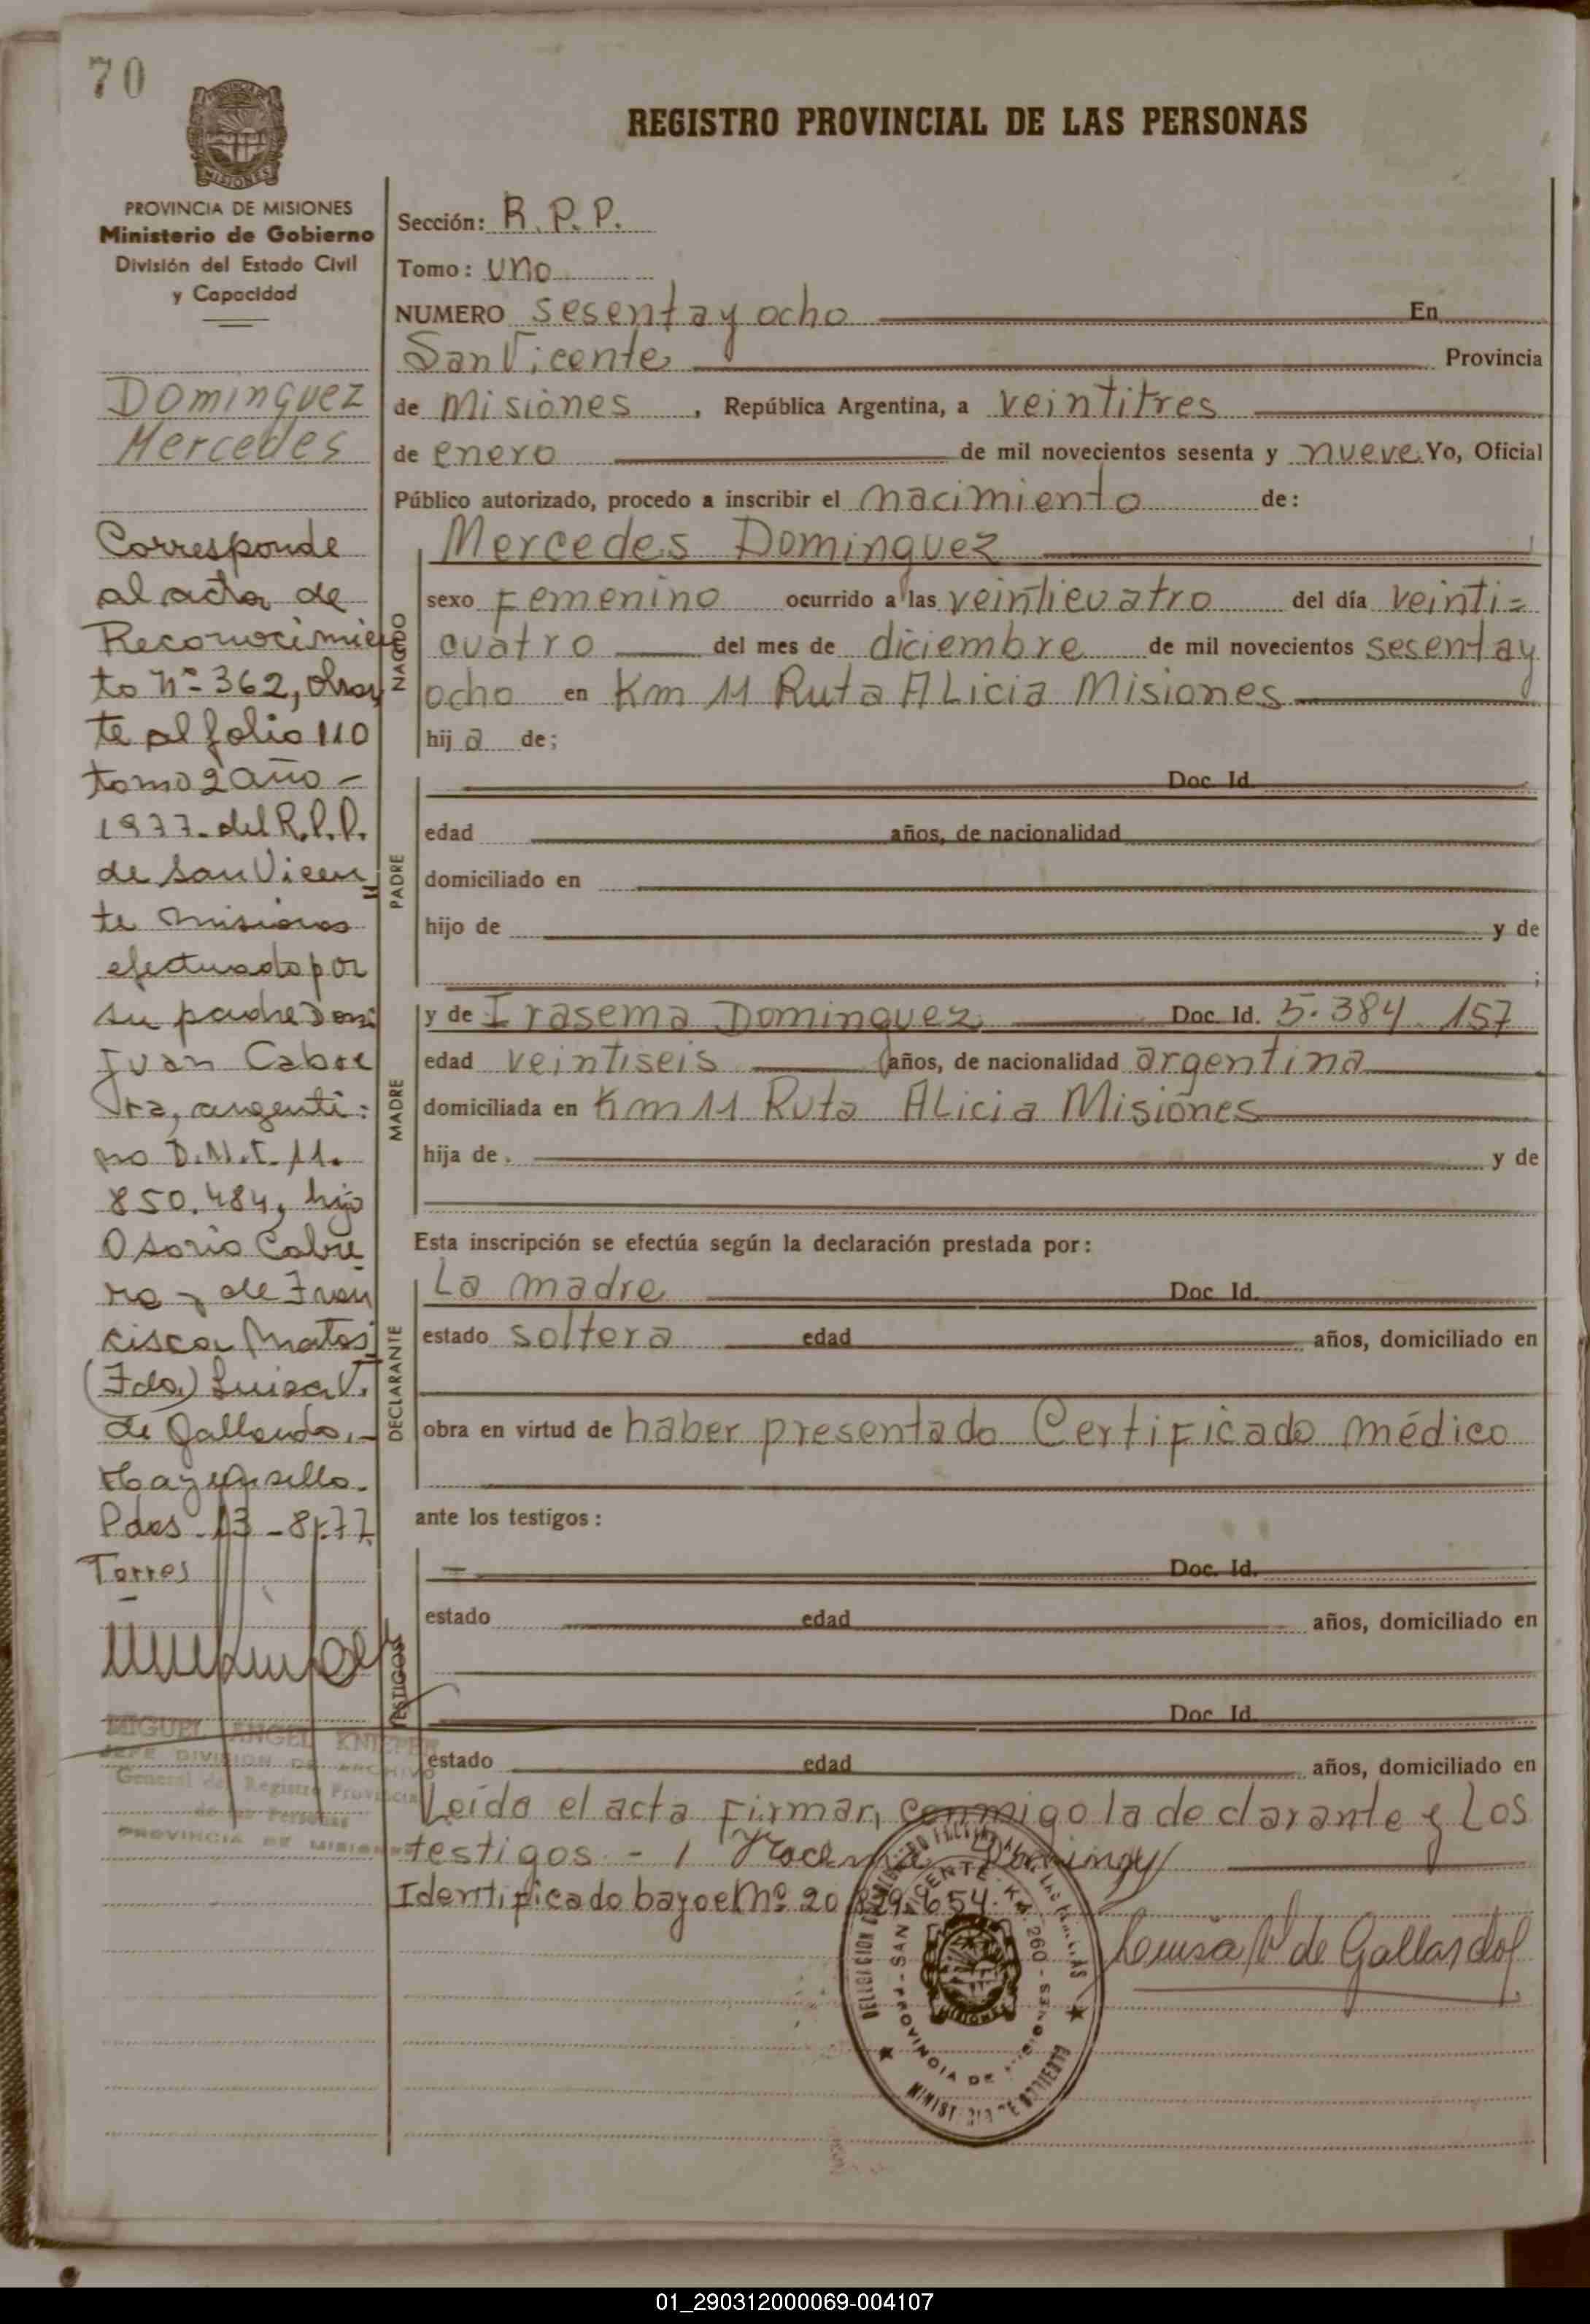 70
PROVINCIA DE MISIONES
Ministerio de Gobierno
División del Estado Civil
y Capacidad
Dominguez
Mercedes
Corresponde
al acta de
Reconocimien
to nº 362, obran
te al folio 110
tomo 2 año -
1977. del R.P.P.
de San Vicen=
te Misiones
efectuado por
su padre Don:
Juan Cabre
ra, argenti:
no D.N.I. 11.
850.484, hijo
Osorio Cabre
ra y de Fran
cisca Matos
(Fdo) Luisa V.
de Gallardo.-
Hay un sello.
Pdas - 13 - 8-77
Torres
MIGUEL ANGEL KNIEPER
JEFE DIVISION DE ARCHIVO
General del Registro Provincial
de las Personas
PROVINCIA DE MISIONES
REGISTRO PROVINCIAL DE LAS PERSONAS
Sección: R.P.P.
Tomo: uno
NUMERO sesenta y ocho En
San Vicente Provincia
de Misiones, República Argentina, a veintitres
de enero de mil novecientos sesenta y nueve Yo, Oficial
Público autorizado, procedo a inscribir el nacimiento de:
NACIDO
Mercedes Dominguez
sexo Femenino ocurrido a las veinticuatro del día veinti=
cuatro del mes de diciembre de mil novecientos sesenta y
ocho en Km 11 Ruta ALicia Misiones
hija de;
PADRE
Doc. Id.
edad años, de nacionalidad
domiciliado en
hijo de y de
;
MADRE
y de Irasema Dominguez Doc. Id. 5.384.157
edad veintiseis años, de nacionalidad argentina
domiciliada en Km 11 Ruta ALicia Misiones
hija de. y de
Esta inscripción se efectúa según la declaración prestada por:
DECLARANTE
La madre Doc. Id.
estado soltera edad años, domiciliado en
obra en virtud de haber presentado Certificado médico
ante los testigos:
TESTIGOS
Doc. Id.
estado edad años, domiciliado en
Doc. Id.
estado edad años, domiciliado en
Leida el acta Firman, conmigo la declarante y Los
testigos -
Identificado bajo el Nº 20.829.654.
SAN VICENTE - KM. 260 -
PROVINCIA DE MISIONES
MISIONES
Luisa V de Gallardo
01_290312000069-004107